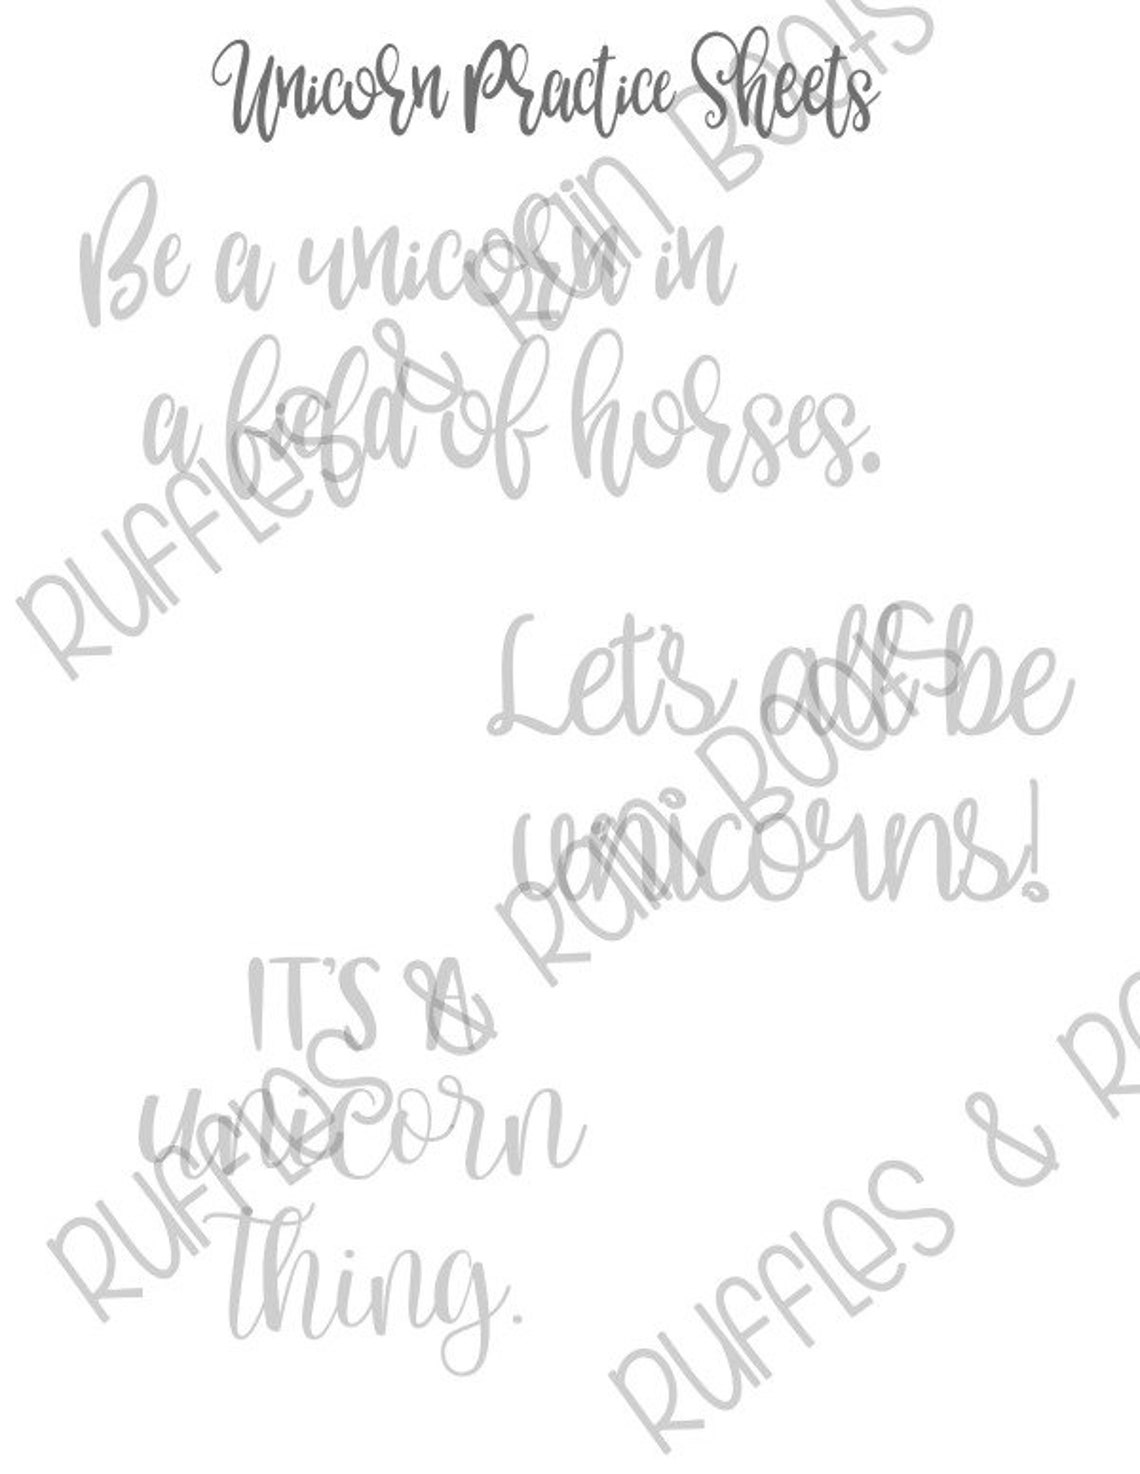 Unicorn Practice Sheets
Be a unicorn in
a field of horses.
Let's all be
unicorns!
IT'S A
unicorn
Thing.
RUFFLES & RAIN BOOTS
RUFFLES & RAIN BOOTS
RUFFLES &